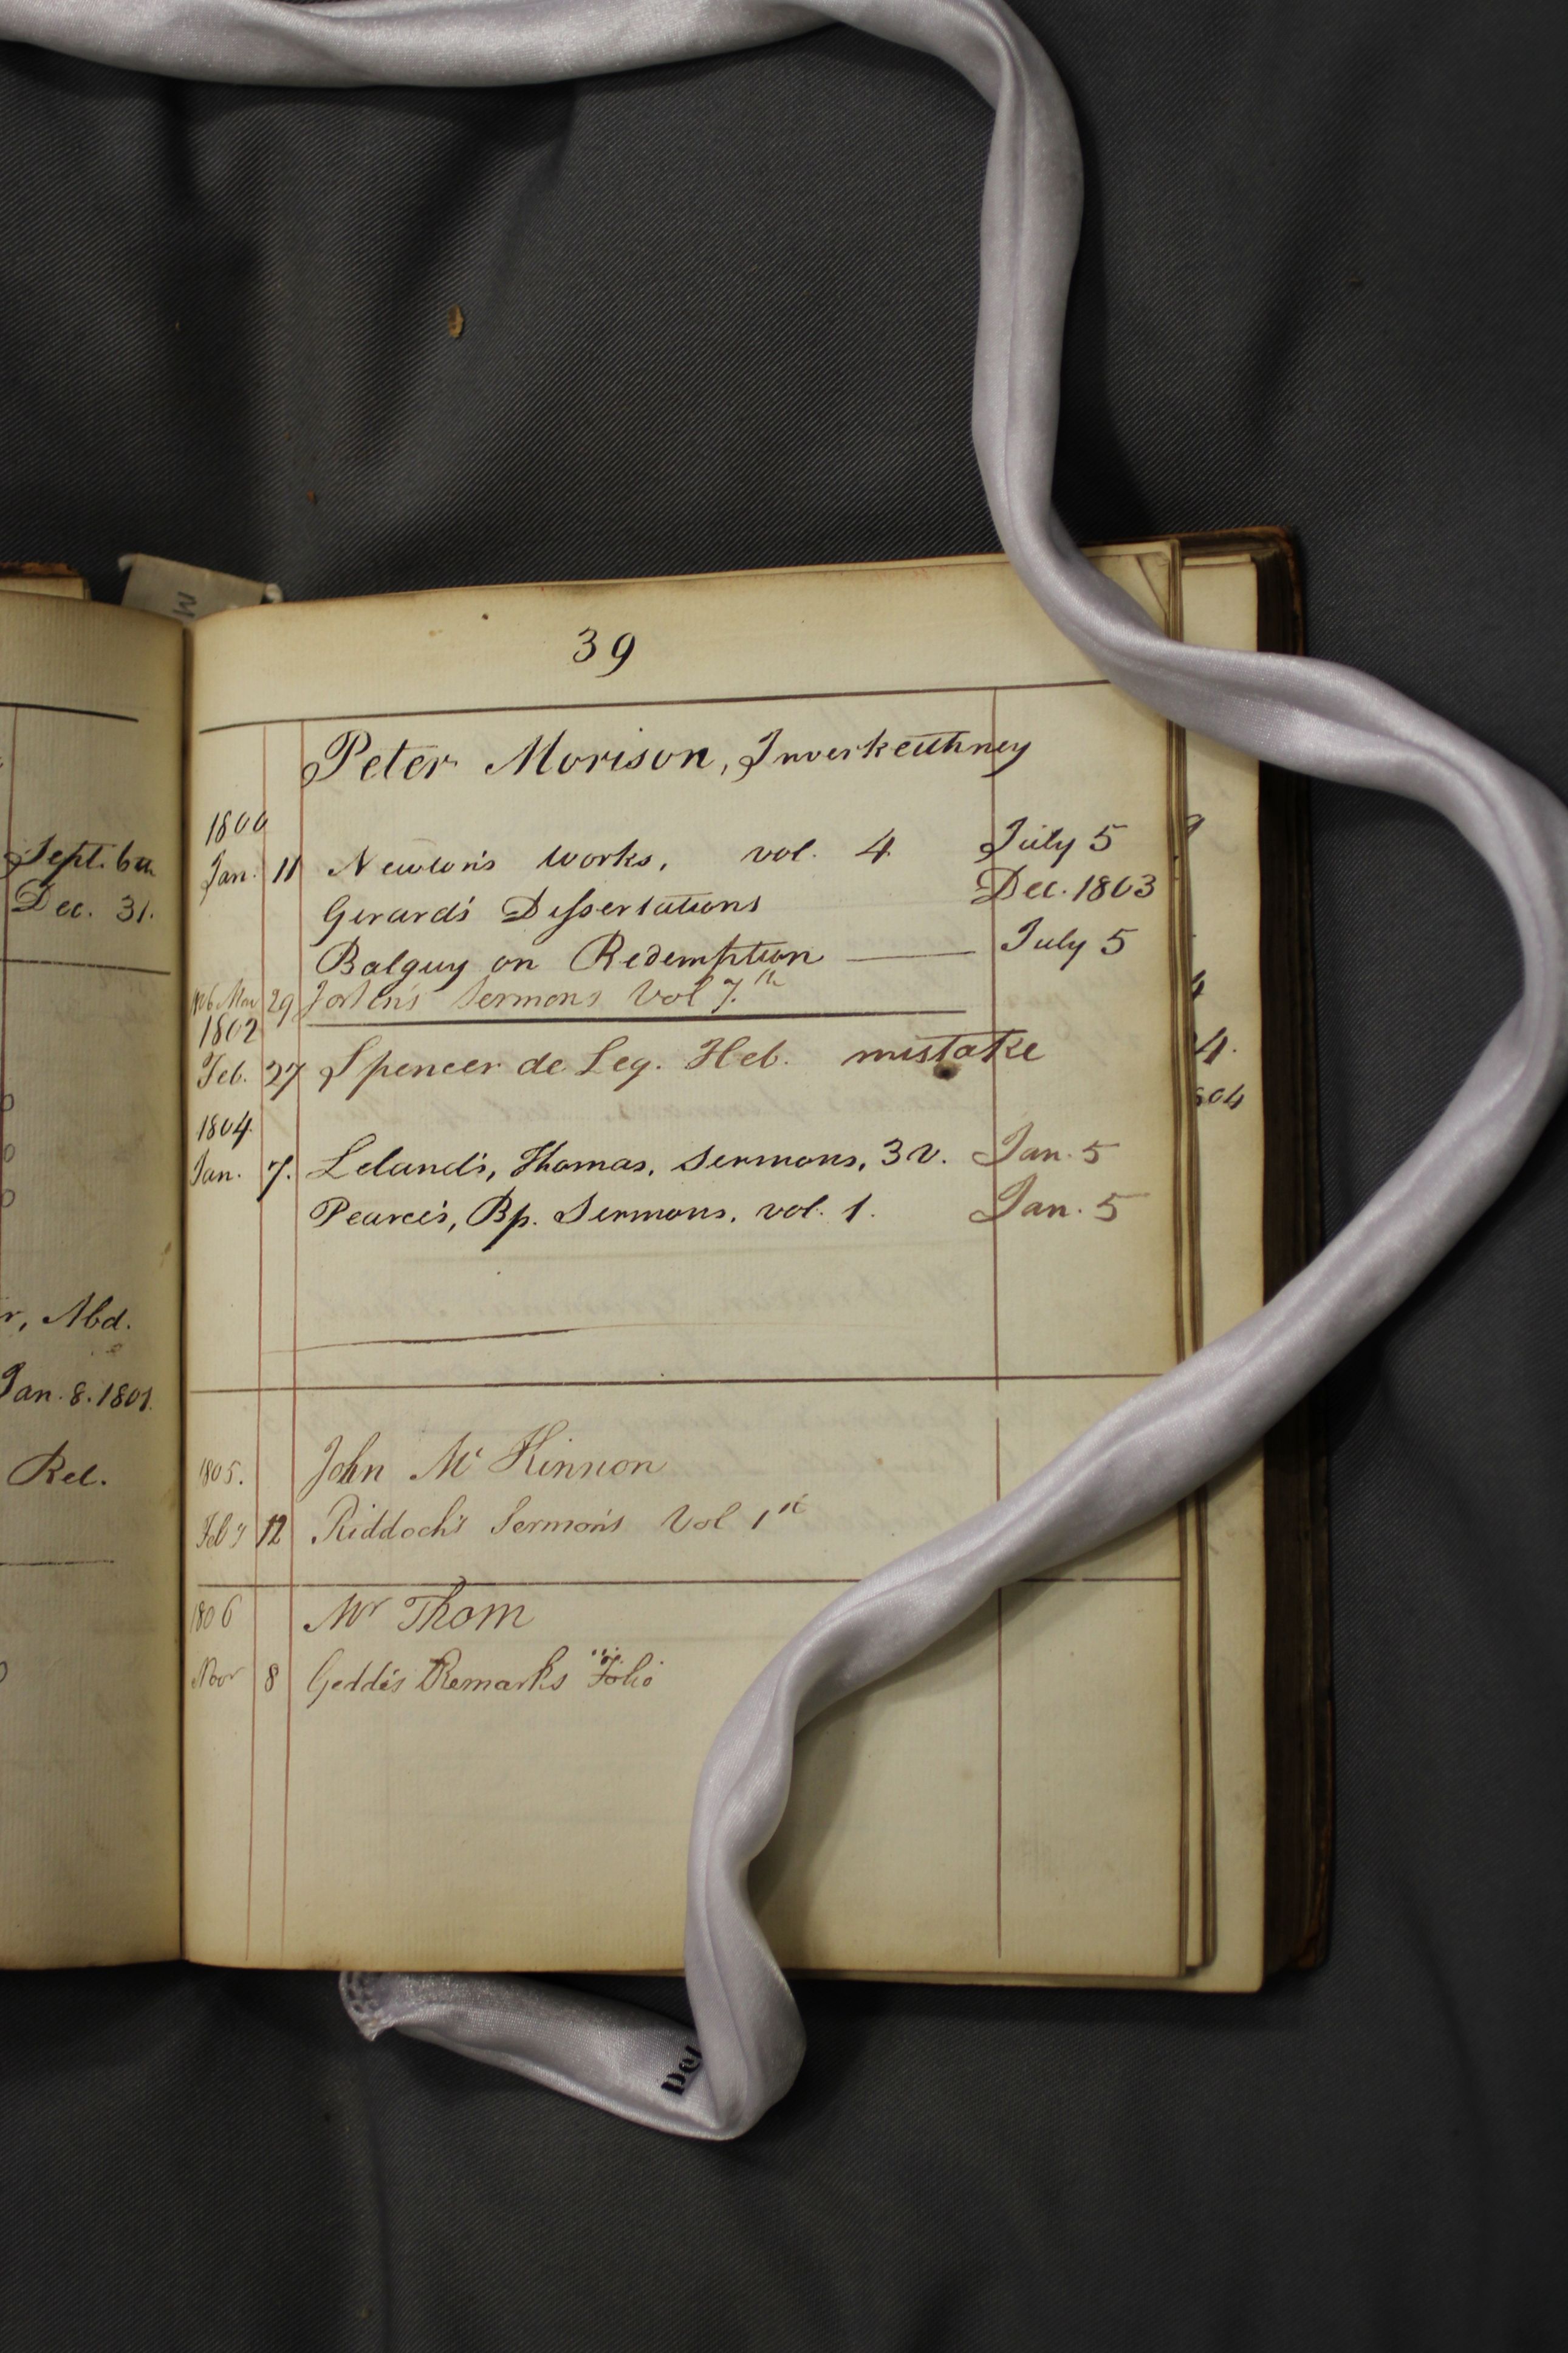 M
39
Sept. 6
Dec. 31.
r, Abd.
Jan. 8. 1801.
Rel.
Peter Morison, Inverkeithney
1800
Jan. 11 Newton's Works, vol. 4 July 5
Gerard's Dissertations Dec. 1803
Balguy on Redemption July 5
29 Jortin's Sermons Vol 7.th
1802
Feb. 27 Spencer de Leg. Heb. mistake
1804
Jan. 7. Leland's, Thomas, Sermons, 3 v. Jan. 5
Pearce's, Bp. Sermons, vol. 1. Jan. 5
9
4
4.
804
1805. John Mc Kinnon
Feby 12 Riddoch's Sermons Vol 1st
1806 Mr Thom
Novr 8 Gedde's Remarks Folio